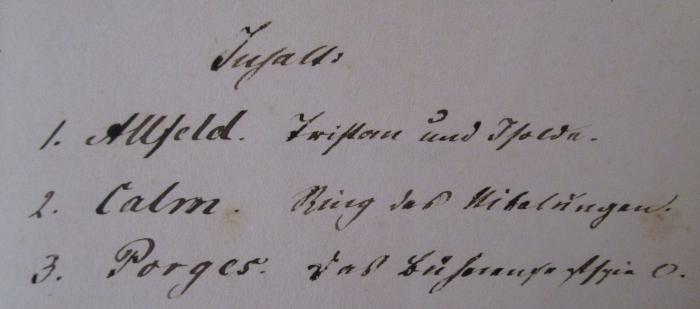 Inhalt:
1. Allfeld. Tristan und Isolde.
2. Calm. Ring des Nibelungen.
3. Porges. Das Bühnenfestspiel.